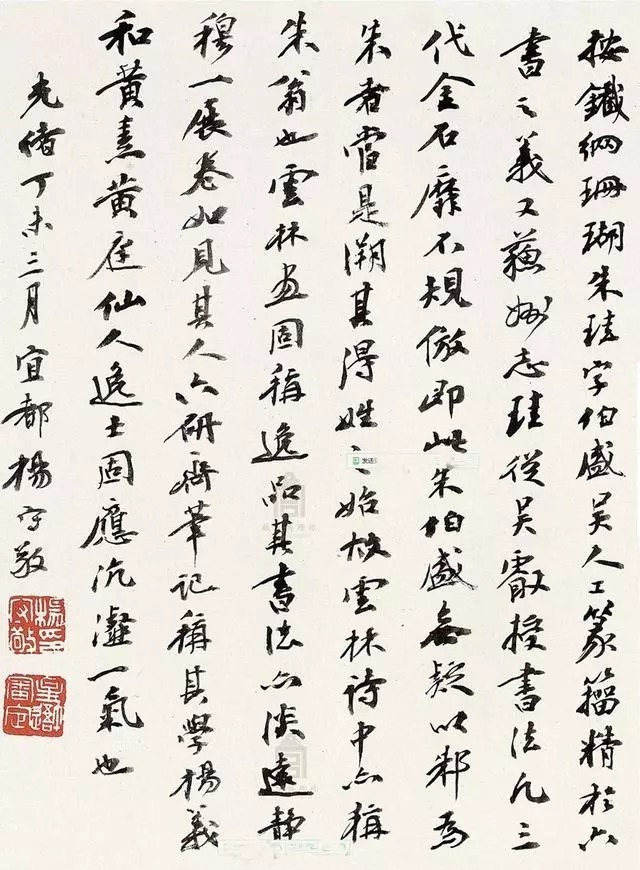 按鐵網珊瑚朱珪字伯盛吴人工篆籀精於六
書之義又蘇州志珪從吴叡授書法凡三
代金石靡不規倣即此朱伯盛無疑以邾為
朱者當是溯其得姓之始故雲林詩中亦稱
朱翁也雲林畫固稱逸品其書法亦淡遠静
穆一展卷如見其人六研齋筆記稱其學楊義
和黄素黄庭仙人逸士固應沆瀣一氣也
光緒丁未三月宜都楊守敬
发送